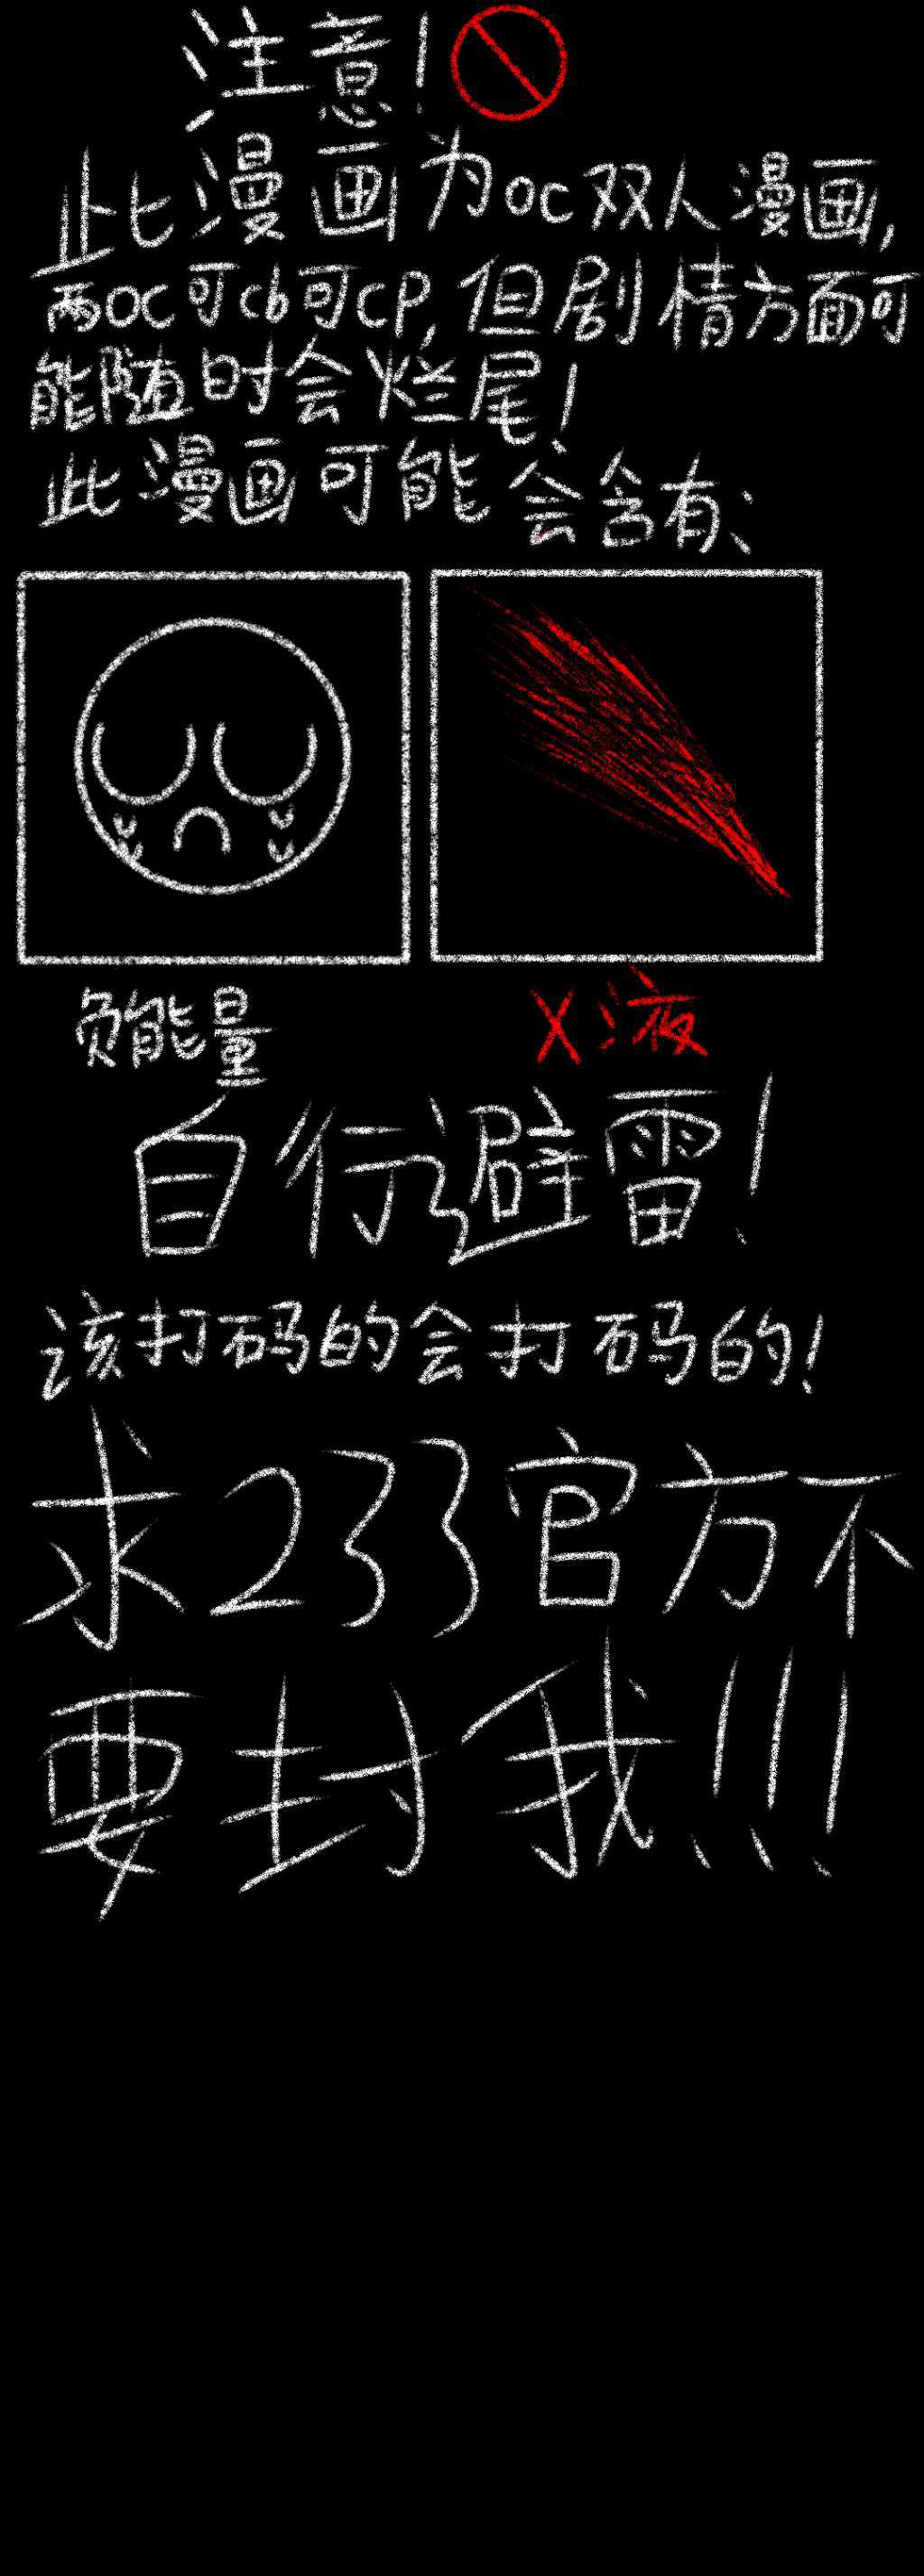 注意！
此漫画为oc双人漫画，
两oc可cb可cp，但剧情方面可
能随时会烂尾！
此漫画可能会含有：
负能量
X液
自行避雷！
该打码的会打码的！
求233官方不
要封我！！！